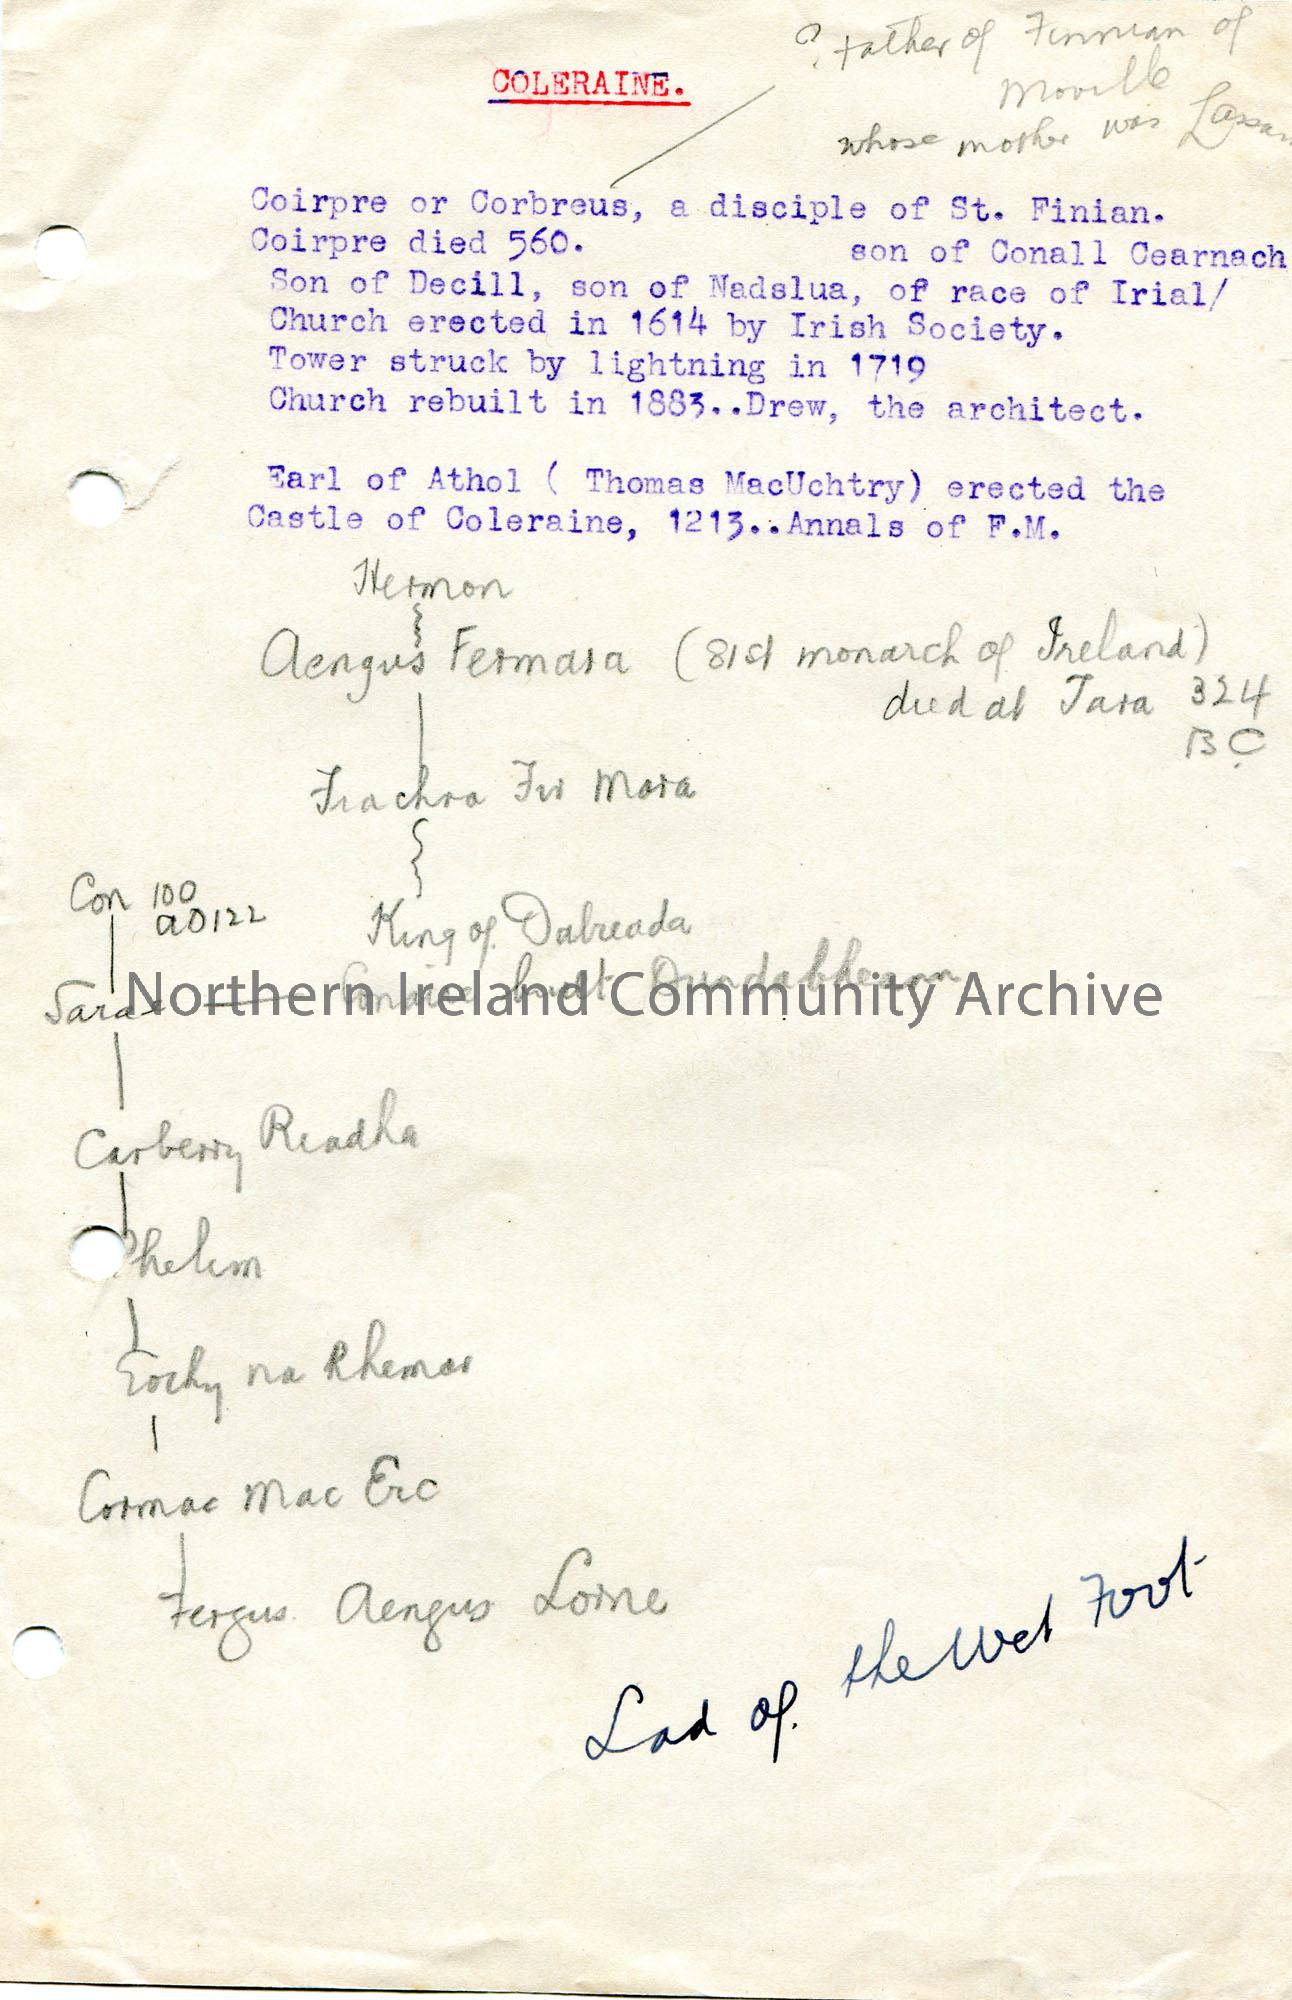 ? Father of Finnian of
Moville
whose mother was Lassar
COLERAINE.
Coirpre or Corbreus, a disciple of St. Finian.
Coirpre died 560.
son of Conall Cearnach
Son of Decill, son of Nadslua, of race of Irial/
Church erected in 1614 by Irish Society.
Tower struck by lightning in 1719
Church rebuilt in 1883..Drew, the architect.
Earl of Athol ( Thomas MacUchtry) erected the
Castle of Coleraine, 1213..Annals of F.M.
Hermon
Aengus Fermara (81st monarch of Ireland)
died at Tara 324
BC
Fiachra Fir Mara
Con 100
AD122
King of Dalreada
Sarad Conaire built Dundabheann
Northern Ireland Community Archive
Carberry Riadha
Phelim
Eochy na Rhemar
Cormac Mac Erc
Fergus. Aengus Lorne
Lad of the Wet Foot